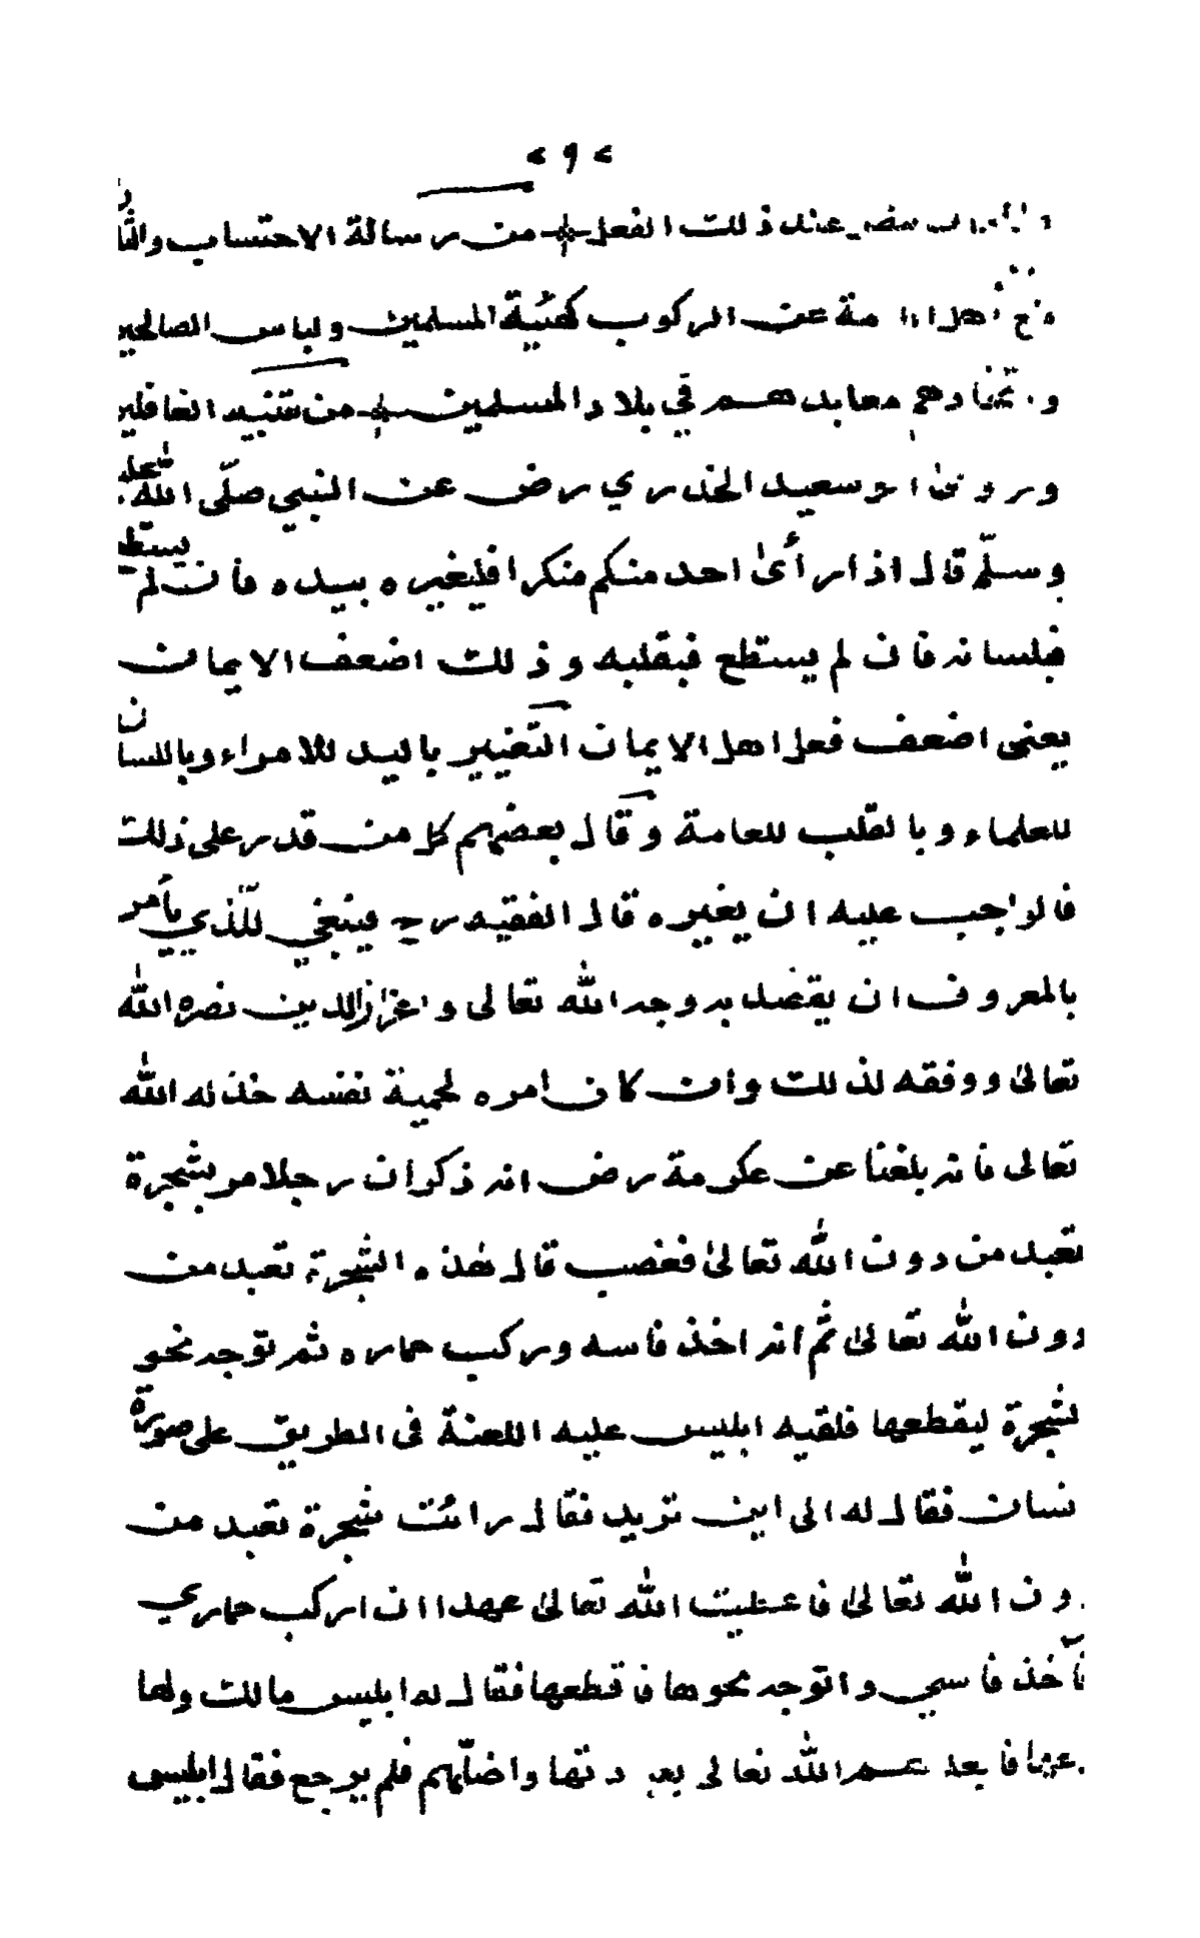 < ٩ >
عند ذلك الفعل من رسالة الاحتساب
عن الركوب كهيئة المسلمين ولباس الصالحين
معابدهم في بلاد المسلمين من تنبيه الغافلين
وروى ابو سعيد الخدري رض عن النبي صلّى الله عليه
وسلّم قال اذا رأى احد منكم منكرا فليغيره بيده فان لم يستطع
فبلسانه فان لم يستطع فبقلبه وذلك اضعف الايمان
يعنى اضعف فعل اهل الايمان التغيير باليد للامراء وباللسان
للعلماء وبالقلب للعامة وقال بعضهم كل من قدر على ذلك
فالواجب عليه ان يغيره قال الفقيه رح فينبغي للّذي يأمر
بالمعروف ان يقصد به وجه الله تعالى واعزاز الدين نصره الله
تعالى ووفقه لذلك وان كان امره لحمية نفسه خذله الله
تعالى فانه بلغنا عن عكرمة رض انه ذكر ان رجلا مر بشجرة
تعبد من دون الله تعالى فغضب قال هذه الشجرة تعبد من
دون الله تعالى ثم انه اخذ فاسه وركب حماره ثم توجه نحو
لشجرة ليقطعها فلقيه ابليس عليه اللعنة في الطريق على صورة
نسان فقال له الى اين تريد فقال رائت شجرة تعبد من
دون الله تعالى فاعطيت الله تعالى عهدا ان اركب حماري
فآخذ فاسي واتوجه نحوها فاقطعها فقال له ابليس مالك ولها
الله تعالى واضلّهم فلم يرجع فقال ابليس